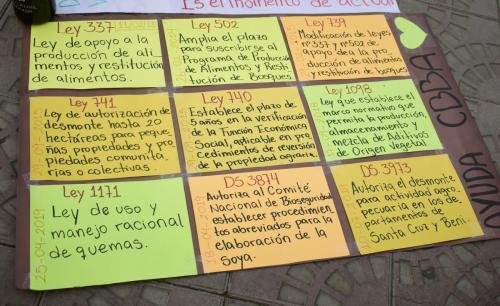 Es el momento de actuar
Ley 337
Ley de apoyo a la
producción de ali
mentos y restitución
de alimentos.
Ley 502
Amplia el plazo
para suscribirse al
Programa de Producción
de Alimentos y Resti
tución de Bosques
Ley 739
Modificación de leyes
nº 337 y nº 502 de
apoyo de a la pro
ducción de alimentos
y restitución de bosques
Ley 741
Ley de autorización de
desmonte hasta 20
hectáreas para peque
ñas propiedades y pro
piedades comunita.
rias o colectivas.
Ley 740
Establece el plazo de
5 años en la verificación
de la Función Económico
Social, aplicable en pro
cedimientos de reversión
de la propiedad agraria.
Ley 1098
Ley que establece el
marco normativo que
permita la producción,
almacenamiento y
mezcla de Aditivos
de Origen Vegetal
Ley 1171
Ley de uso y
manejo racional
de quemas.
25-04-2019
DS 3874
Autoriza al Comité
Nacional de Bioseguridad
establecer procedimien
tos abreviados para la
elaboración de la
Soya.
18-04-2019
DS 3973
Autoriza el desmonte
para actividad agro.
pecuaria en los de.
partamentos de
Santa Cruz y Beni.
CBBA